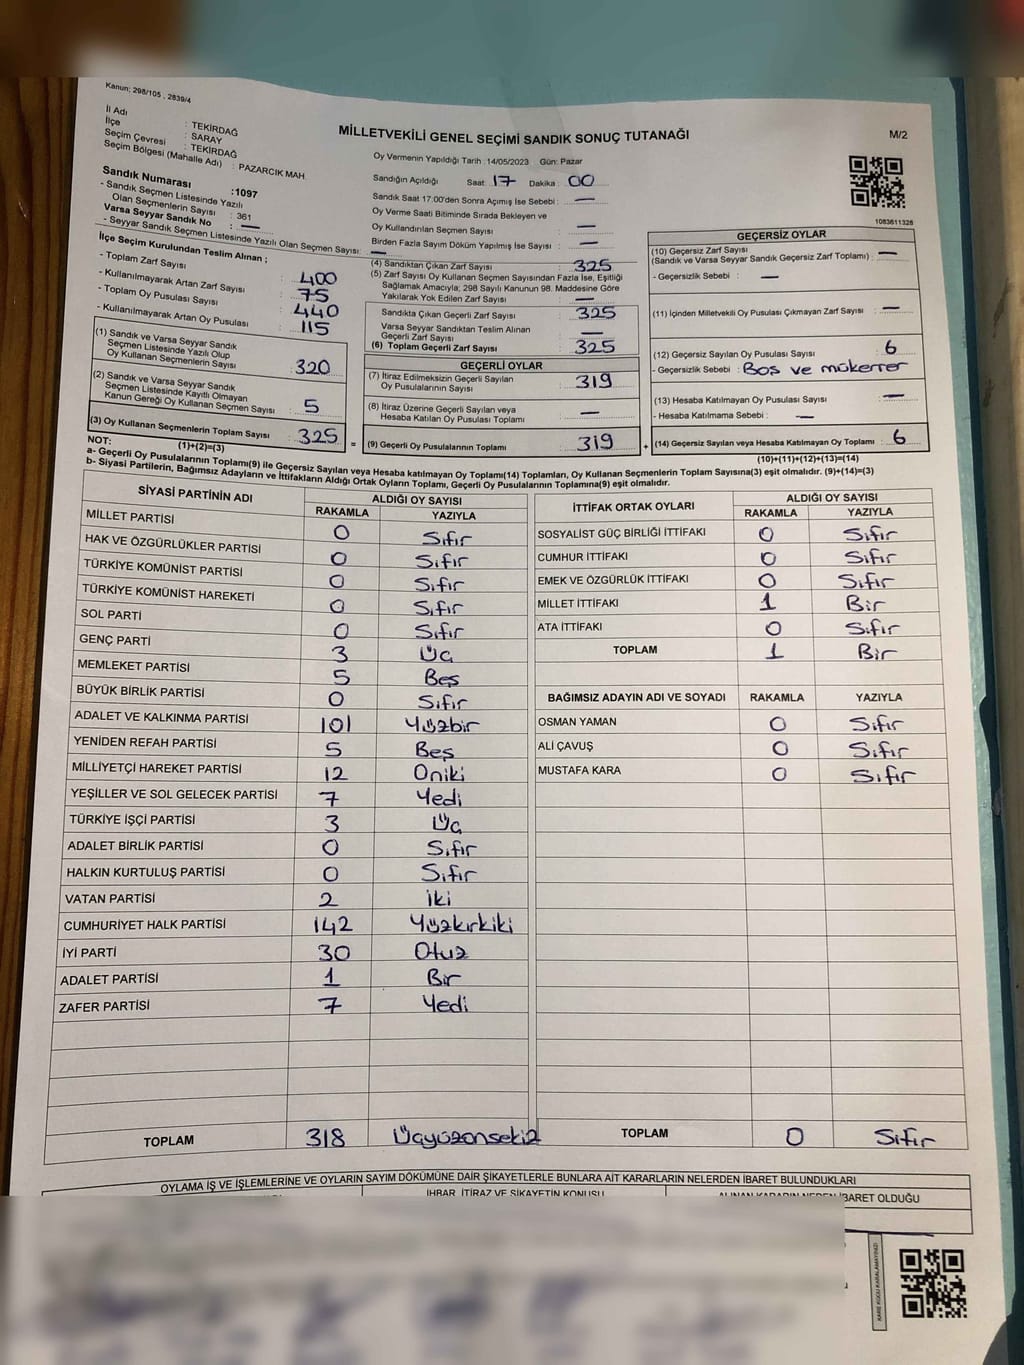 Kanun; 298/105 , 2839/4
İl Adı : TEKİRDAĞ
İlçe : SARAY
Seçim Çevresi : TEKİRDAĞ
Seçim Bölgesi (Mahalle Adı) : PAZARCIK MAH
MİLLETVEKİLİ GENEL SEÇİMİ SANDIK SONUÇ TUTANAĞI
M/2
Oy Vermenin Yapıldığı Tarih : 14/05/2023 Gün: Pazar
Sandığın Açıldığı Saat : 17 Dakika : 00
Sandık Saat 17:00'den Sonra Açımış İse Sebebi : —
Oy Verme Saati Bitiminde Sırada Bekleyen ve
Oy Kullandırılan Seçmen Sayısı : —
Birden Fazla Sayım Döküm Yapılmış İse Sayısı : —
1083611328
Sandık Numarası :1097
- Sandık Seçmen Listesinde Yazılı
Olan Seçmenlerin Sayısı : 361
Varsa Seyyar Sandık No : —
- Seyyar Sandık Seçmen Listesinde Yazılı Olan Seçmen Sayısı: —
İlçe Seçim Kurulundan Teslim Alınan ;
- Toplam Zarf Sayısı : 400
- Kullanılmayarak Artan Zarf Sayısı : 75
- Toplam Oy Pusulası Sayısı : 440
- Kullanılmayarak Artan Oy Pusulası : 115
(1) Sandık ve Varsa Seyyar Sandık
Seçmen Listesinde Yazılı Olup
Oy Kullanan Seçmenlerin Sayısı : 320
(2) Sandık ve Varsa Seyyar Sandık
Seçmen Listesinde Kayıtlı Olmayan
Kanun Gereği Oy Kullanan Seçmen Sayısı : 5
(3) Oy Kullanan Seçmenlerin Toplam Sayısı : 325
(1)+(2)=(3)
(4) Sandıktan Çıkan Zarf Sayısı : 325
(5) Zarf Sayısı Oy Kullanan Seçmen Sayısından Fazla İse, Eşitliği
Sağlamak Amacıyla; 298 Sayılı Kanunun 98. Maddesine Göre
Yakılarak Yok Edilen Zarf Sayısı : —
Sandıkta Çıkan Geçerli Zarf Sayısı : 325
Varsa Seyyar Sandıktan Teslim Alınan
Geçerli Zarf Sayısı : —
(6) Toplam Geçerli Zarf Sayısı : 325
GEÇERLİ OYLAR
(7) İtiraz Edilmeksizin Geçerli Sayılan
Oy Pusulalarının Sayısı : 319
(8) İtiraz Üzerine Geçerli Sayılan veya
Hesaba Katılan Oy Pusulası Toplamı : —
= (9) Geçerli Oy Pusulalarının Toplamı : 319 +
GEÇERSİZ OYLAR
(10) Geçersiz Zarf Sayısı
(Sandık ve Varsa Seyyar Sandık Geçersiz Zarf Toplamı) : —
- Geçersizlik Sebebi : —
(11) İçinden Milletvekili Oy Pusulası Çıkmayan Zarf Sayısı : —
(12) Geçersiz Sayılan Oy Pusulası Sayısı : 6
- Geçersizlik Sebebi : Boş ve mükerrer
(13) Hesaba Katılmayan Oy Pusulası Sayısı : —
- Hesaba Katılmama Sebebi : —
(14) Geçersiz Sayılan veya Hesaba Katılmayan Oy Toplamı : 6
(10)+(11)+(12)+(13)=(14)
NOT:
a- Geçerli Oy Pusulalarının Toplamı(9) ile Geçersiz Sayılan veya Hesaba katılmayan Oy Toplamı(14) Toplamları, Oy Kullanan Seçmenlerin Toplam Sayısına(3) eşit olmalıdır. (9)+(14)=(3)
b- Siyasi Partilerin, Bağımsız Adayların ve İttifakların Aldığı Ortak Oyların Toplamı, Geçerli Oy Pusulalarının Toplamına(9) eşit olmalıdır.
SİYASİ PARTİNİN ADI ALDIĞI OY SAYISI
RAKAMLA YAZIYLA
MİLLET PARTİSİ 0 Sıfır
HAK VE ÖZGÜRLÜKLER PARTİSİ 0 Sıfır
TÜRKİYE KOMÜNİST PARTİSİ 0 Sıfır
TÜRKİYE KOMÜNİST HAREKETİ 0 Sıfır
SOL PARTİ 0 Sıfır
GENÇ PARTİ 3 Üç
MEMLEKET PARTİSİ 5 Beş
BÜYÜK BİRLİK PARTİSİ 0 Sıfır
ADALET VE KALKINMA PARTİSİ 101 Yüzbir
YENİDEN REFAH PARTİSİ 5 Beş
MİLLİYETÇİ HAREKET PARTİSİ 12 Oniki
YEŞİLLER VE SOL GELECEK PARTİSİ 7 Yedi
TÜRKİYE İŞÇİ PARTİSİ 3 Üç
ADALET BİRLİK PARTİSİ 0 Sıfır
HALKIN KURTULUŞ PARTİSİ 0 Sıfır
VATAN PARTİSİ 2 İki
CUMHURİYET HALK PARTİSİ 142 Yüzkırkiki
İYİ PARTİ 30 Otuz
ADALET PARTİSİ 1 Bir
ZAFER PARTİSİ 7 Yedi
TOPLAM 318 Üçyüzonsekiz
İTTİFAK ORTAK OYLARI ALDIĞI OY SAYISI
RAKAMLA YAZIYLA
SOSYALİST GÜÇ BİRLİĞİ İTTİFAKI 0 Sıfır
CUMHUR İTTİFAKI 0 Sıfır
EMEK VE ÖZGÜRLÜK İTTİFAKI 0 Sıfır
MİLLET İTTİFAKI 1 Bir
ATA İTTİFAKI 0 Sıfır
TOPLAM 1 Bir
BAĞIMSIZ ADAYIN ADI VE SOYADI RAKAMLA YAZIYLA
OSMAN YAMAN 0 Sıfır
ALİ ÇAVUŞ 0 Sıfır
MUSTAFA KARA 0 Sıfır
TOPLAM 0 Sıfır
OYLAMA İŞ VE İŞLEMLERİNE VE OYLARIN SAYIM DÖKÜMÜNE DAİR ŞİKAYETLERLE BUNLARA AİT KARARLARIN NELERDEN İBARET BULUNDUKLARI
İHBAR, İTİRAZ VE ŞİKAYETİN KONUSU ALINAN KARARIN NEDEN İBARET OLDUĞU
KARE KODU KARALAMAYINIZ!